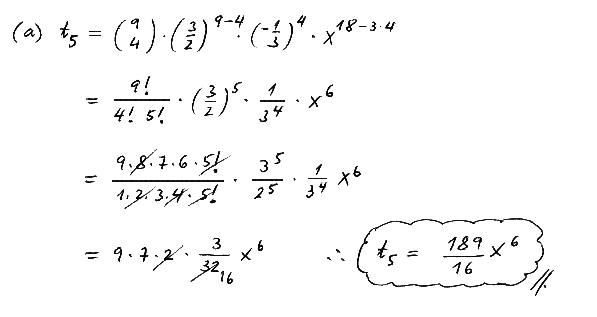 (a) t₅ = (9 4) · (3/2)^(9-4) · (-1/3)^4 · x^(18-3·4)
= 9!/(4! 5!) · (3/2)^5 · 1/3^4 · x^6
= (9·8·7·6·5!)/(1·2·3·4·5!) · 3^5/2^5 · 1/3^4 x^6
= 9·7·2 · 3/32 16 x^6 ∴ t₅ = 189/16 x^6 //.